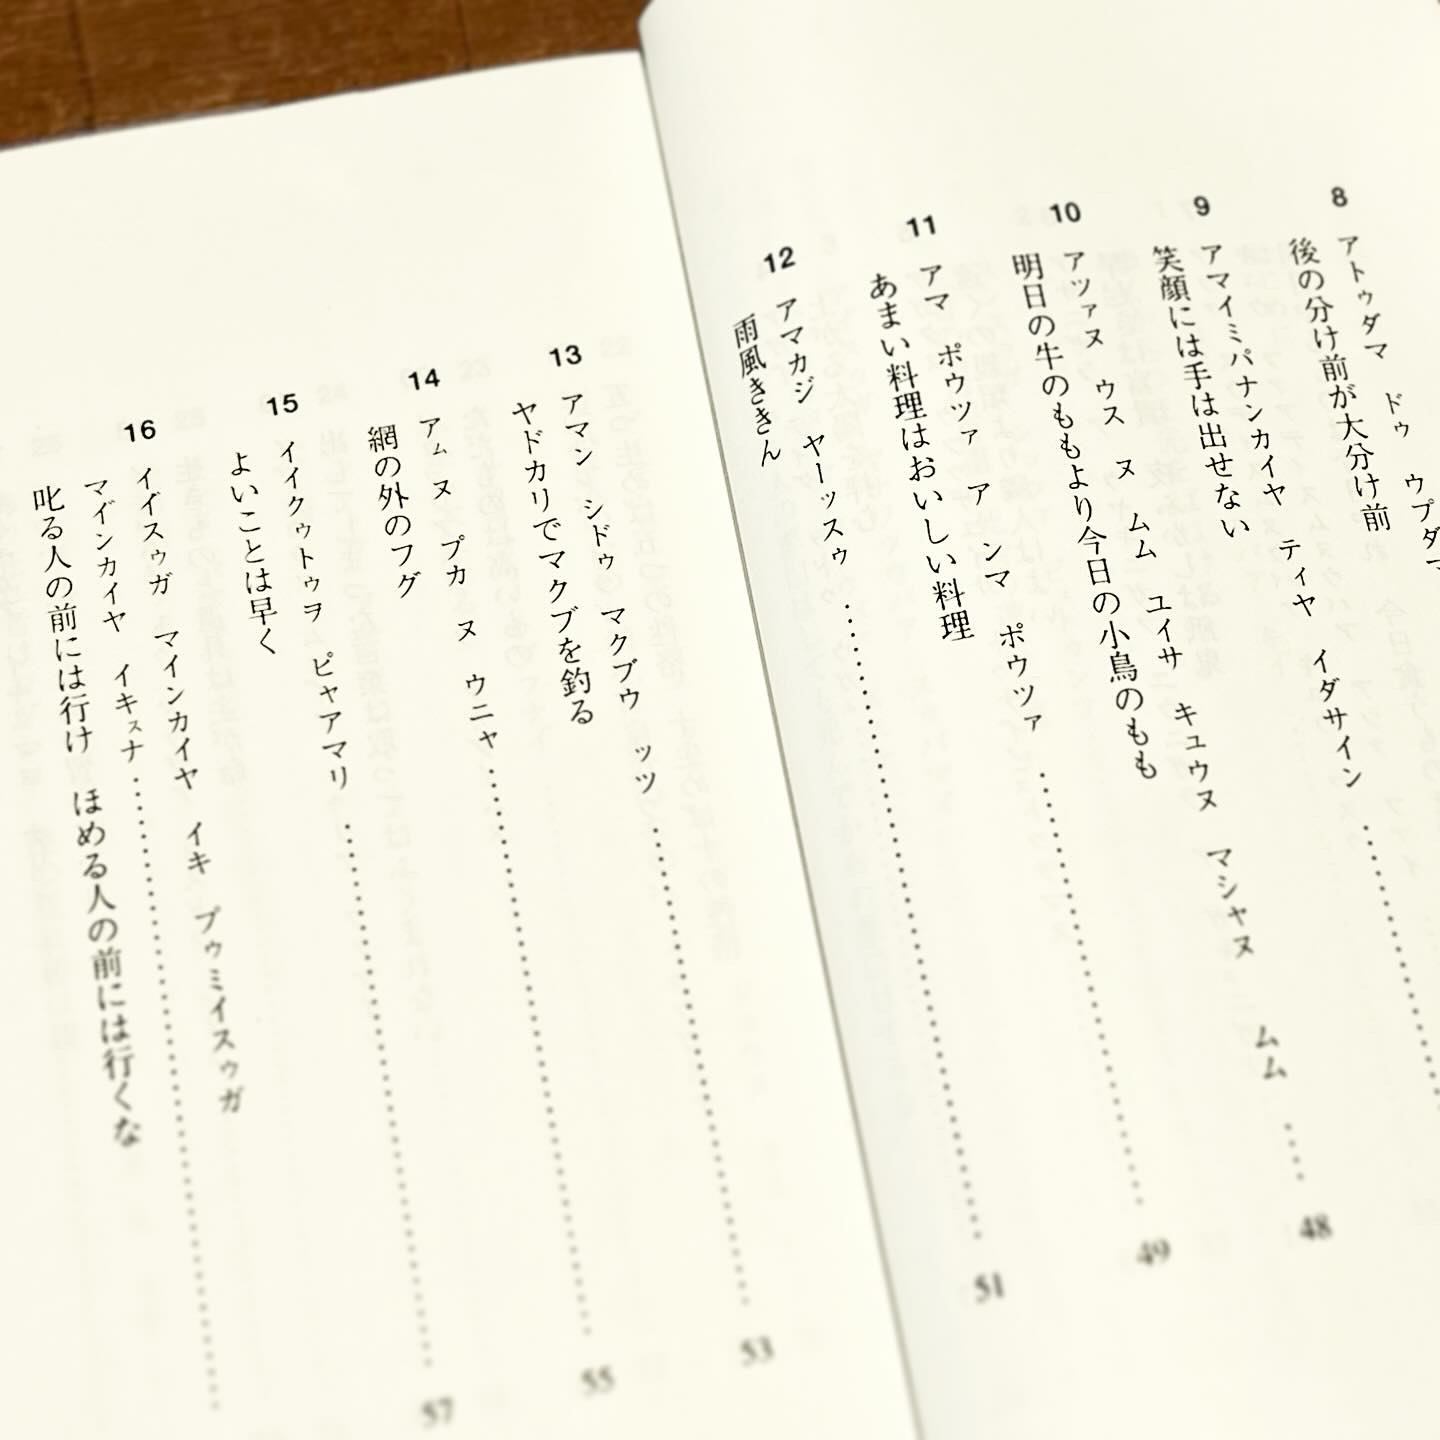 8
アトゥダマ ドゥ ウプダマ
後の分け前が大分け前
9
アマイミパナンカイヤ ティヤ イダサイン
笑顔には手は出せない
48
10
アツァヌ ウス ヌ ムム ユイサ キュウヌ マシャヌ ムム
明日の牛のももより今日の小鳥のもも
49
11
アマ ポウツァ ア ンマ ポウツァ
あまい料理はおいしい料理
51
12
アマカジ ヤーッスゥ
雨風ききん
13
アマン シドゥ マクブウ ッツ
ヤドカリでマクブを釣る
53
14
アム ヌ プカ ヌ ウニャ
網の外のフグ
55
15
イイクゥトゥヲ ピャアマリ
よいことは早く
57
16
イイスゥガ マインカイヤ イキ プゥミイスゥガ
マインカイヤ イキスナ
叱る人の前には行け ほめる人の前には行くな